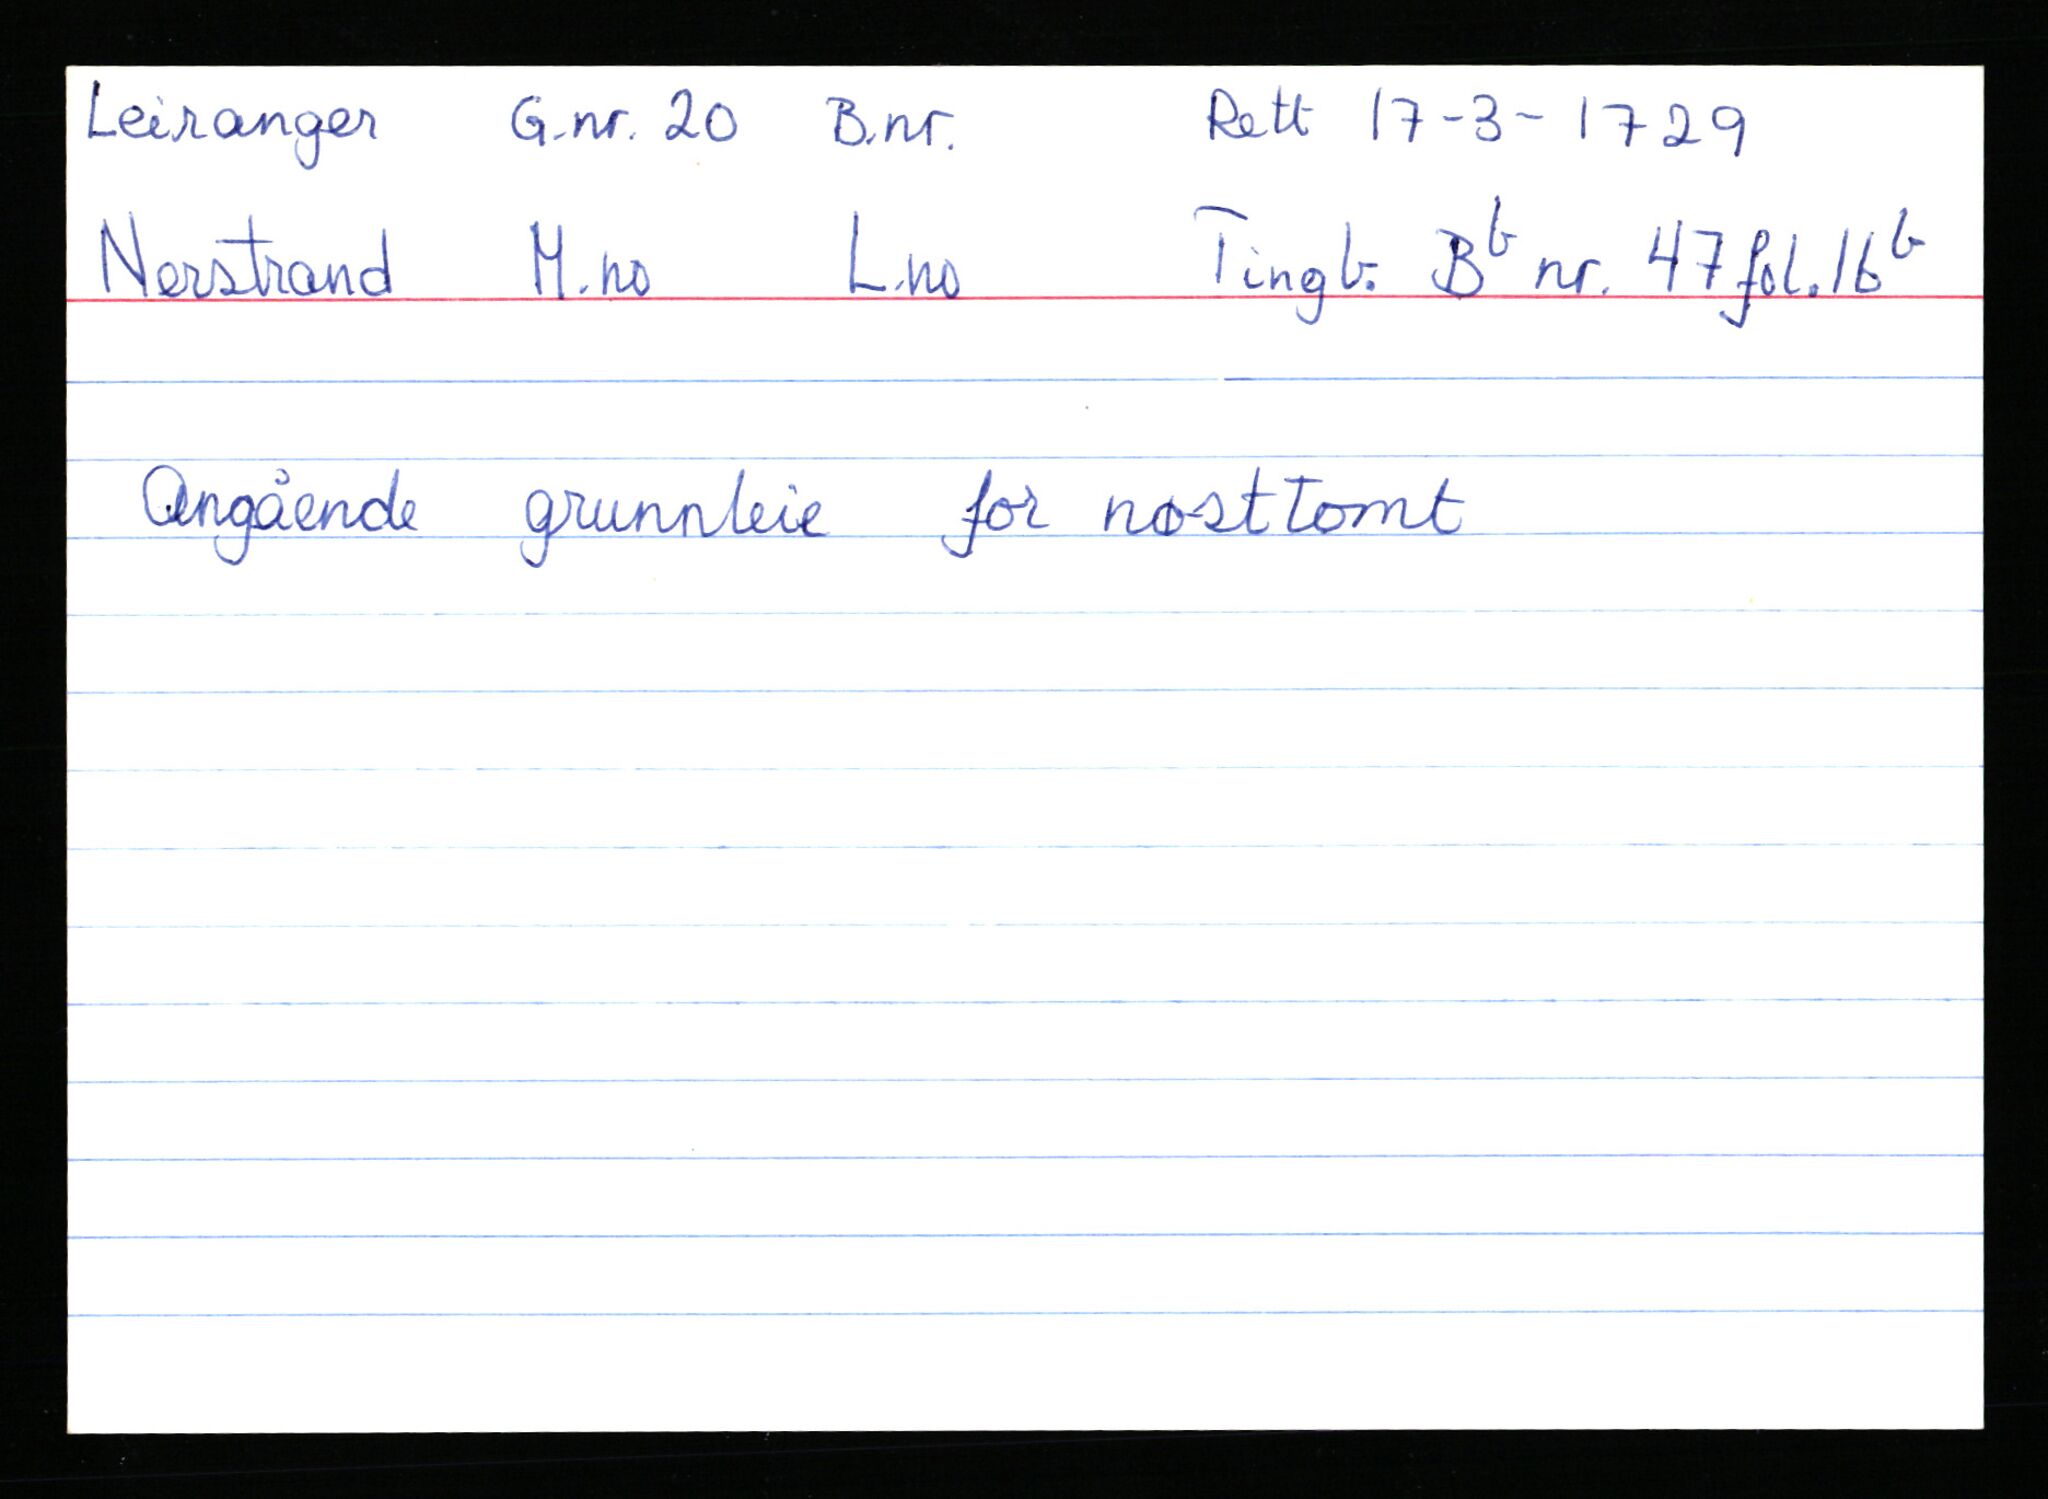 Leiranger G.nr. 20 B.nr. Rett 17-3-1729
Nerstrand M.no L.no Tingb. Bᵇ nr. 47 fol. 16ᵇ
Angående grunnleie for nøsttomt